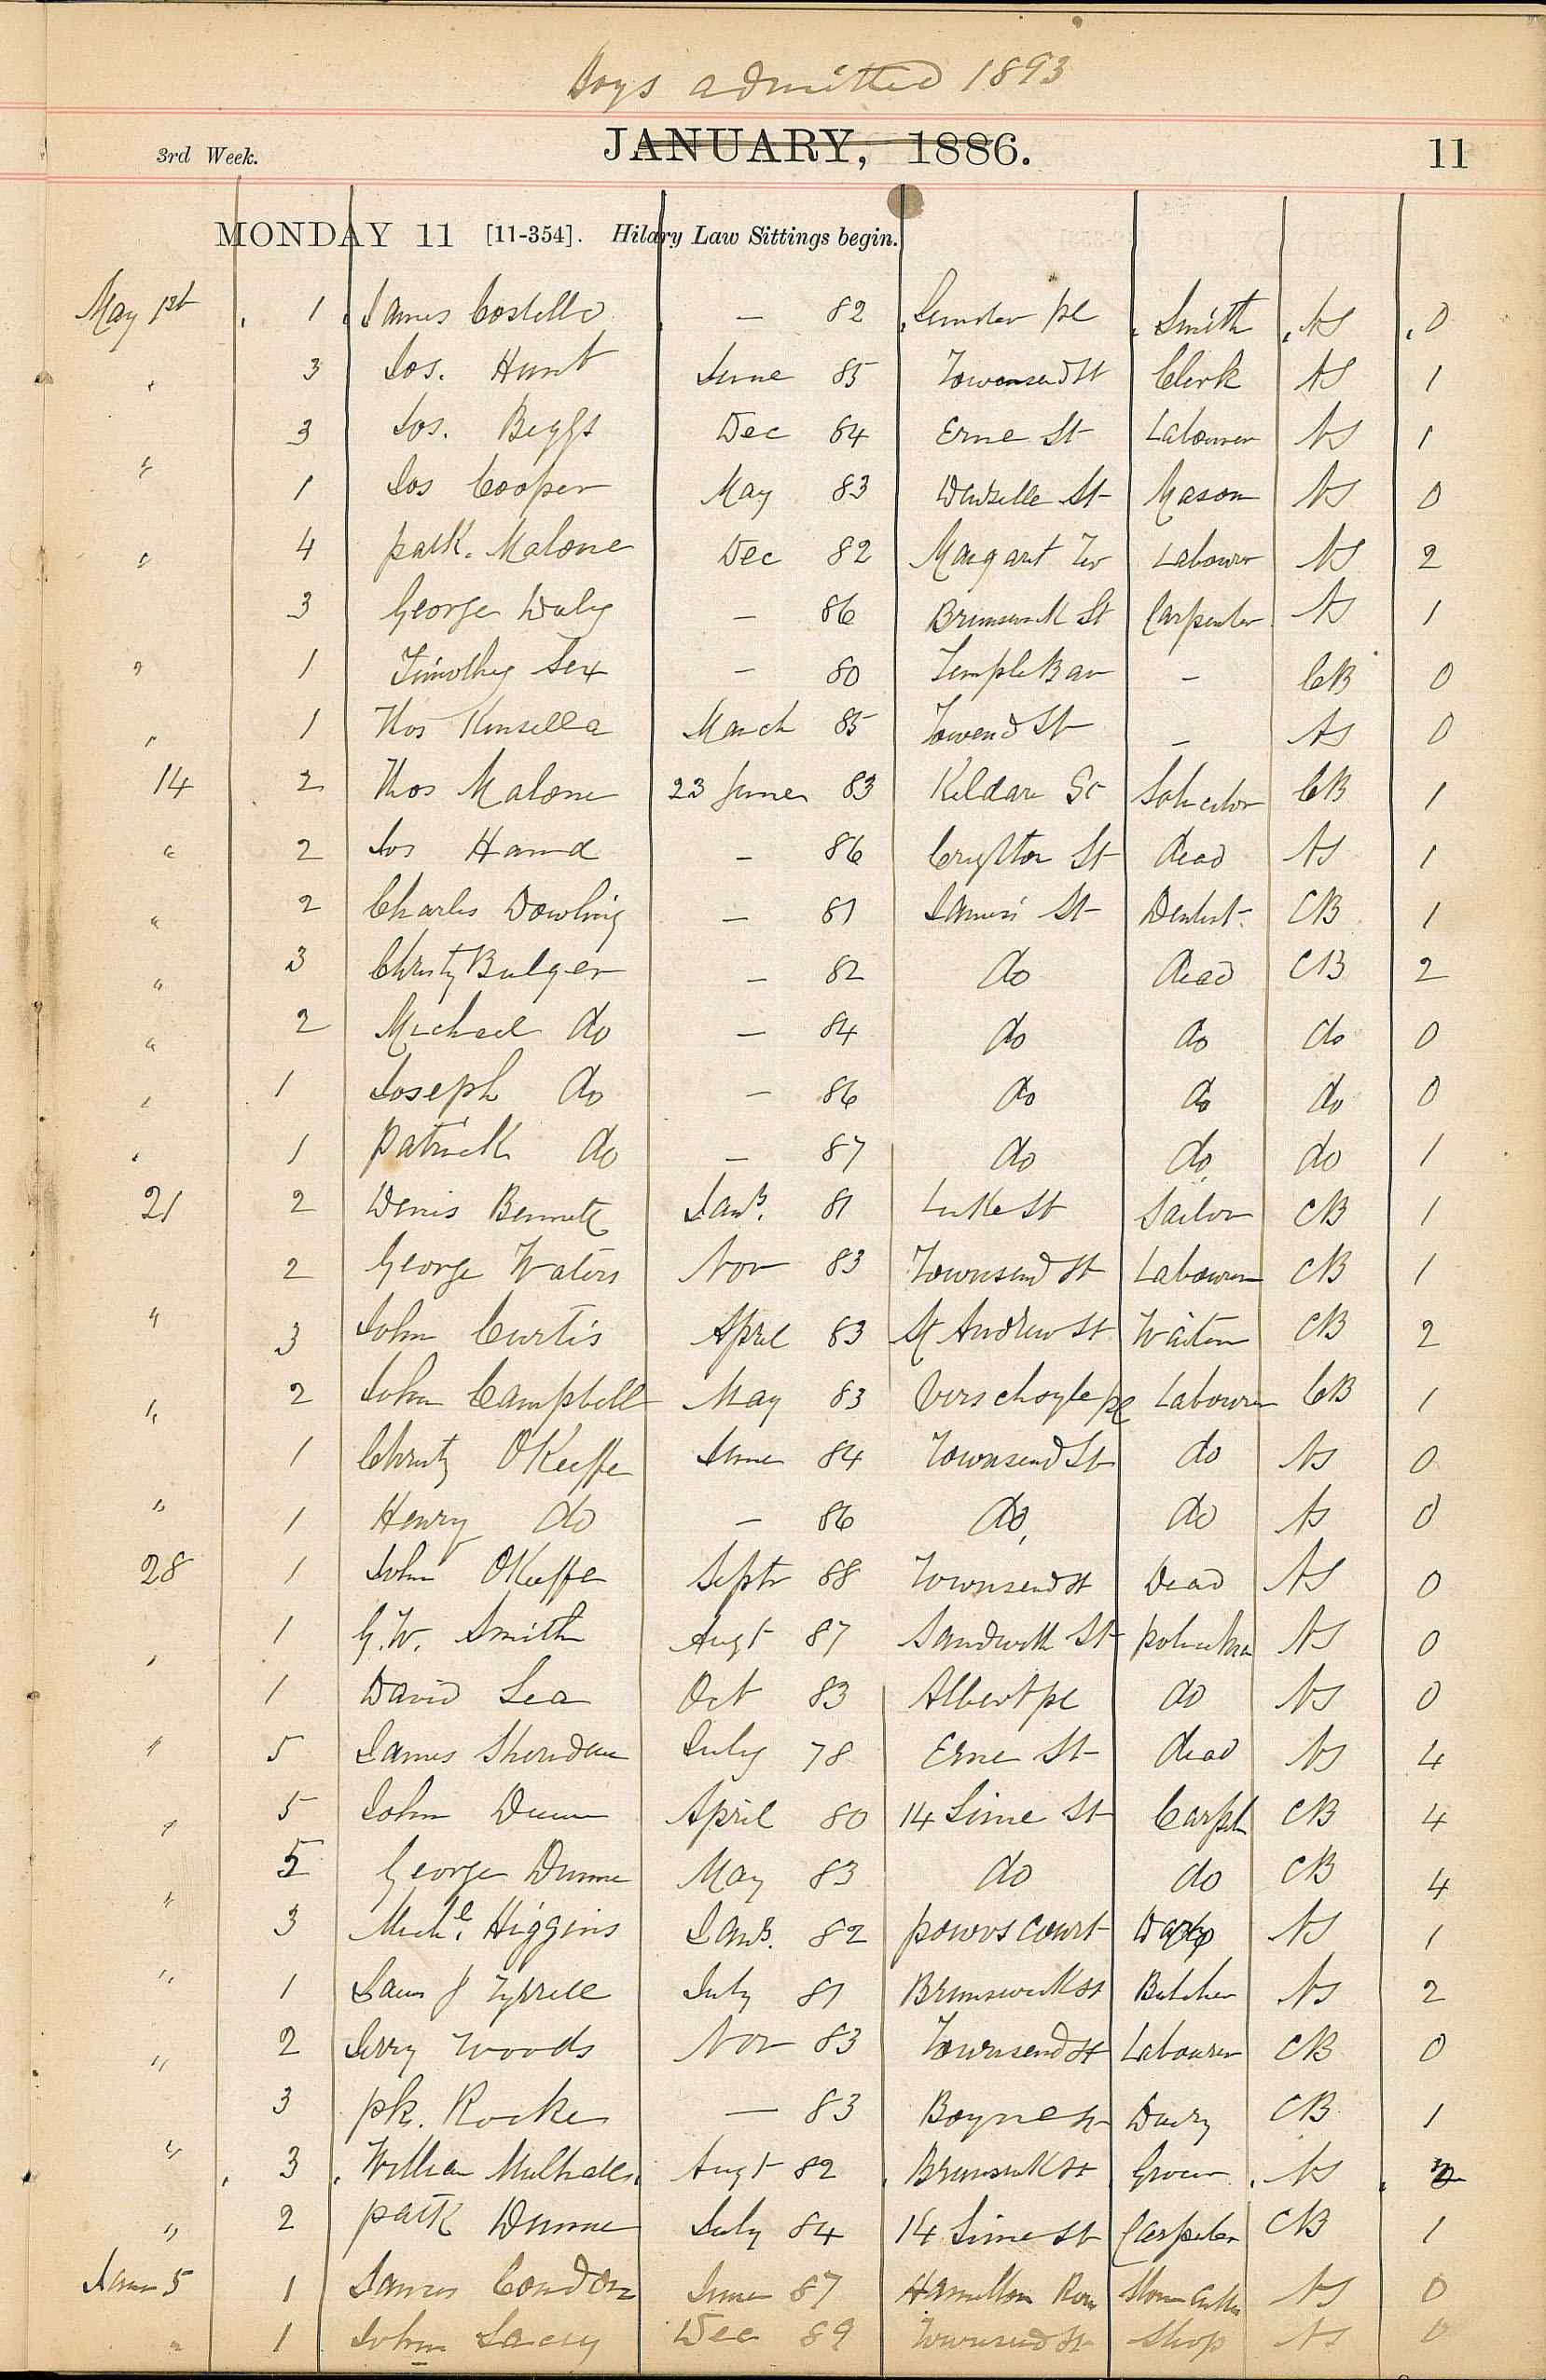 Boys admitted 1893
3rd Week. JANUARY, 1886. 11
MONDAY 11 [11-354]. Hilary Law Sittings begin.
May 1st 1 James Costello — 82 pl Smith NS 0
" 3 Jos. Hunt June 85 Townsend St Clerk NS 1
3 Jos. Beggs Dec 84 Erne St Labourer NS 1
" 1 Jos Cooper May 83 St Mason NS 0
" 4 patk. Malone Dec 82 Margaret Labourer NS 2
3 George Daly — 86 Brunswick St Carpenter NS 1
" 1 Timothy Sex — 80 Temple Bar — CB 0
" 1 Thos Kinsella March 85 Towend St — NS 0
14 2 Thos Malone 23 June 83 Kildare St Solicitor CB 1
" 2 Jos Hand — 86 St dead NS 1
" 2 Charles Dowling — 81 James St Dentist CB 1
" 3 Christy Bulger — 82 do dead CB 2
" 2 Michael do — 84 do do do 0
" 1 Joseph do — 86 do do do 0
" 1 Patrick do — 87 do do do 1
21 2 Denis Bennett 81 Luke St Sailor CB 1
2 George Waters Nov 83 Townsend St Labourer CB 1
" 3 John Curtis April 83 St Andrew St Waiter CB 2
" 2 John Campbell May 83 Verschoyle pl Labourer CB 1
1 Christy OKeeffe June 84 Townsend St do NS 0
" 1 Henry do — 86 do do NS 0
28 1 John OKeeffe Septr 88 Townsend st Dead NS 0
" 1 G.W. Smith Augt 87 Sandwith St policeman NS 0
1 David Lea Oct 83 Albert pl do NS 0
" 5 James Sheridan July 78 Erne St dead NS 4
" 5 John Dunne April 80 14 Lime St CB 4
5 George Dunne May 83 do do CB 4
" 3 Michl. Higgins 82 powrs court NS 1
" 1 J Tyrrell July 81 Brunswick st Butcher NS 2
" 2 Jerry Woods Nov 83 Townsend st Labourer CB 0
3 pk. Rocke — 83 Boyne st Dairy CB 1
" 3 William Augt 82 Brunswick st Grocer NS
" 2 patk Dunne July 84 14 Lime st Carpenter CB 1
June 5 1 James Condon June 87 Hamilton Row Stone Cutter NS 0
" 1 John Lacey Dec 89 Townsend St Shop NS 0